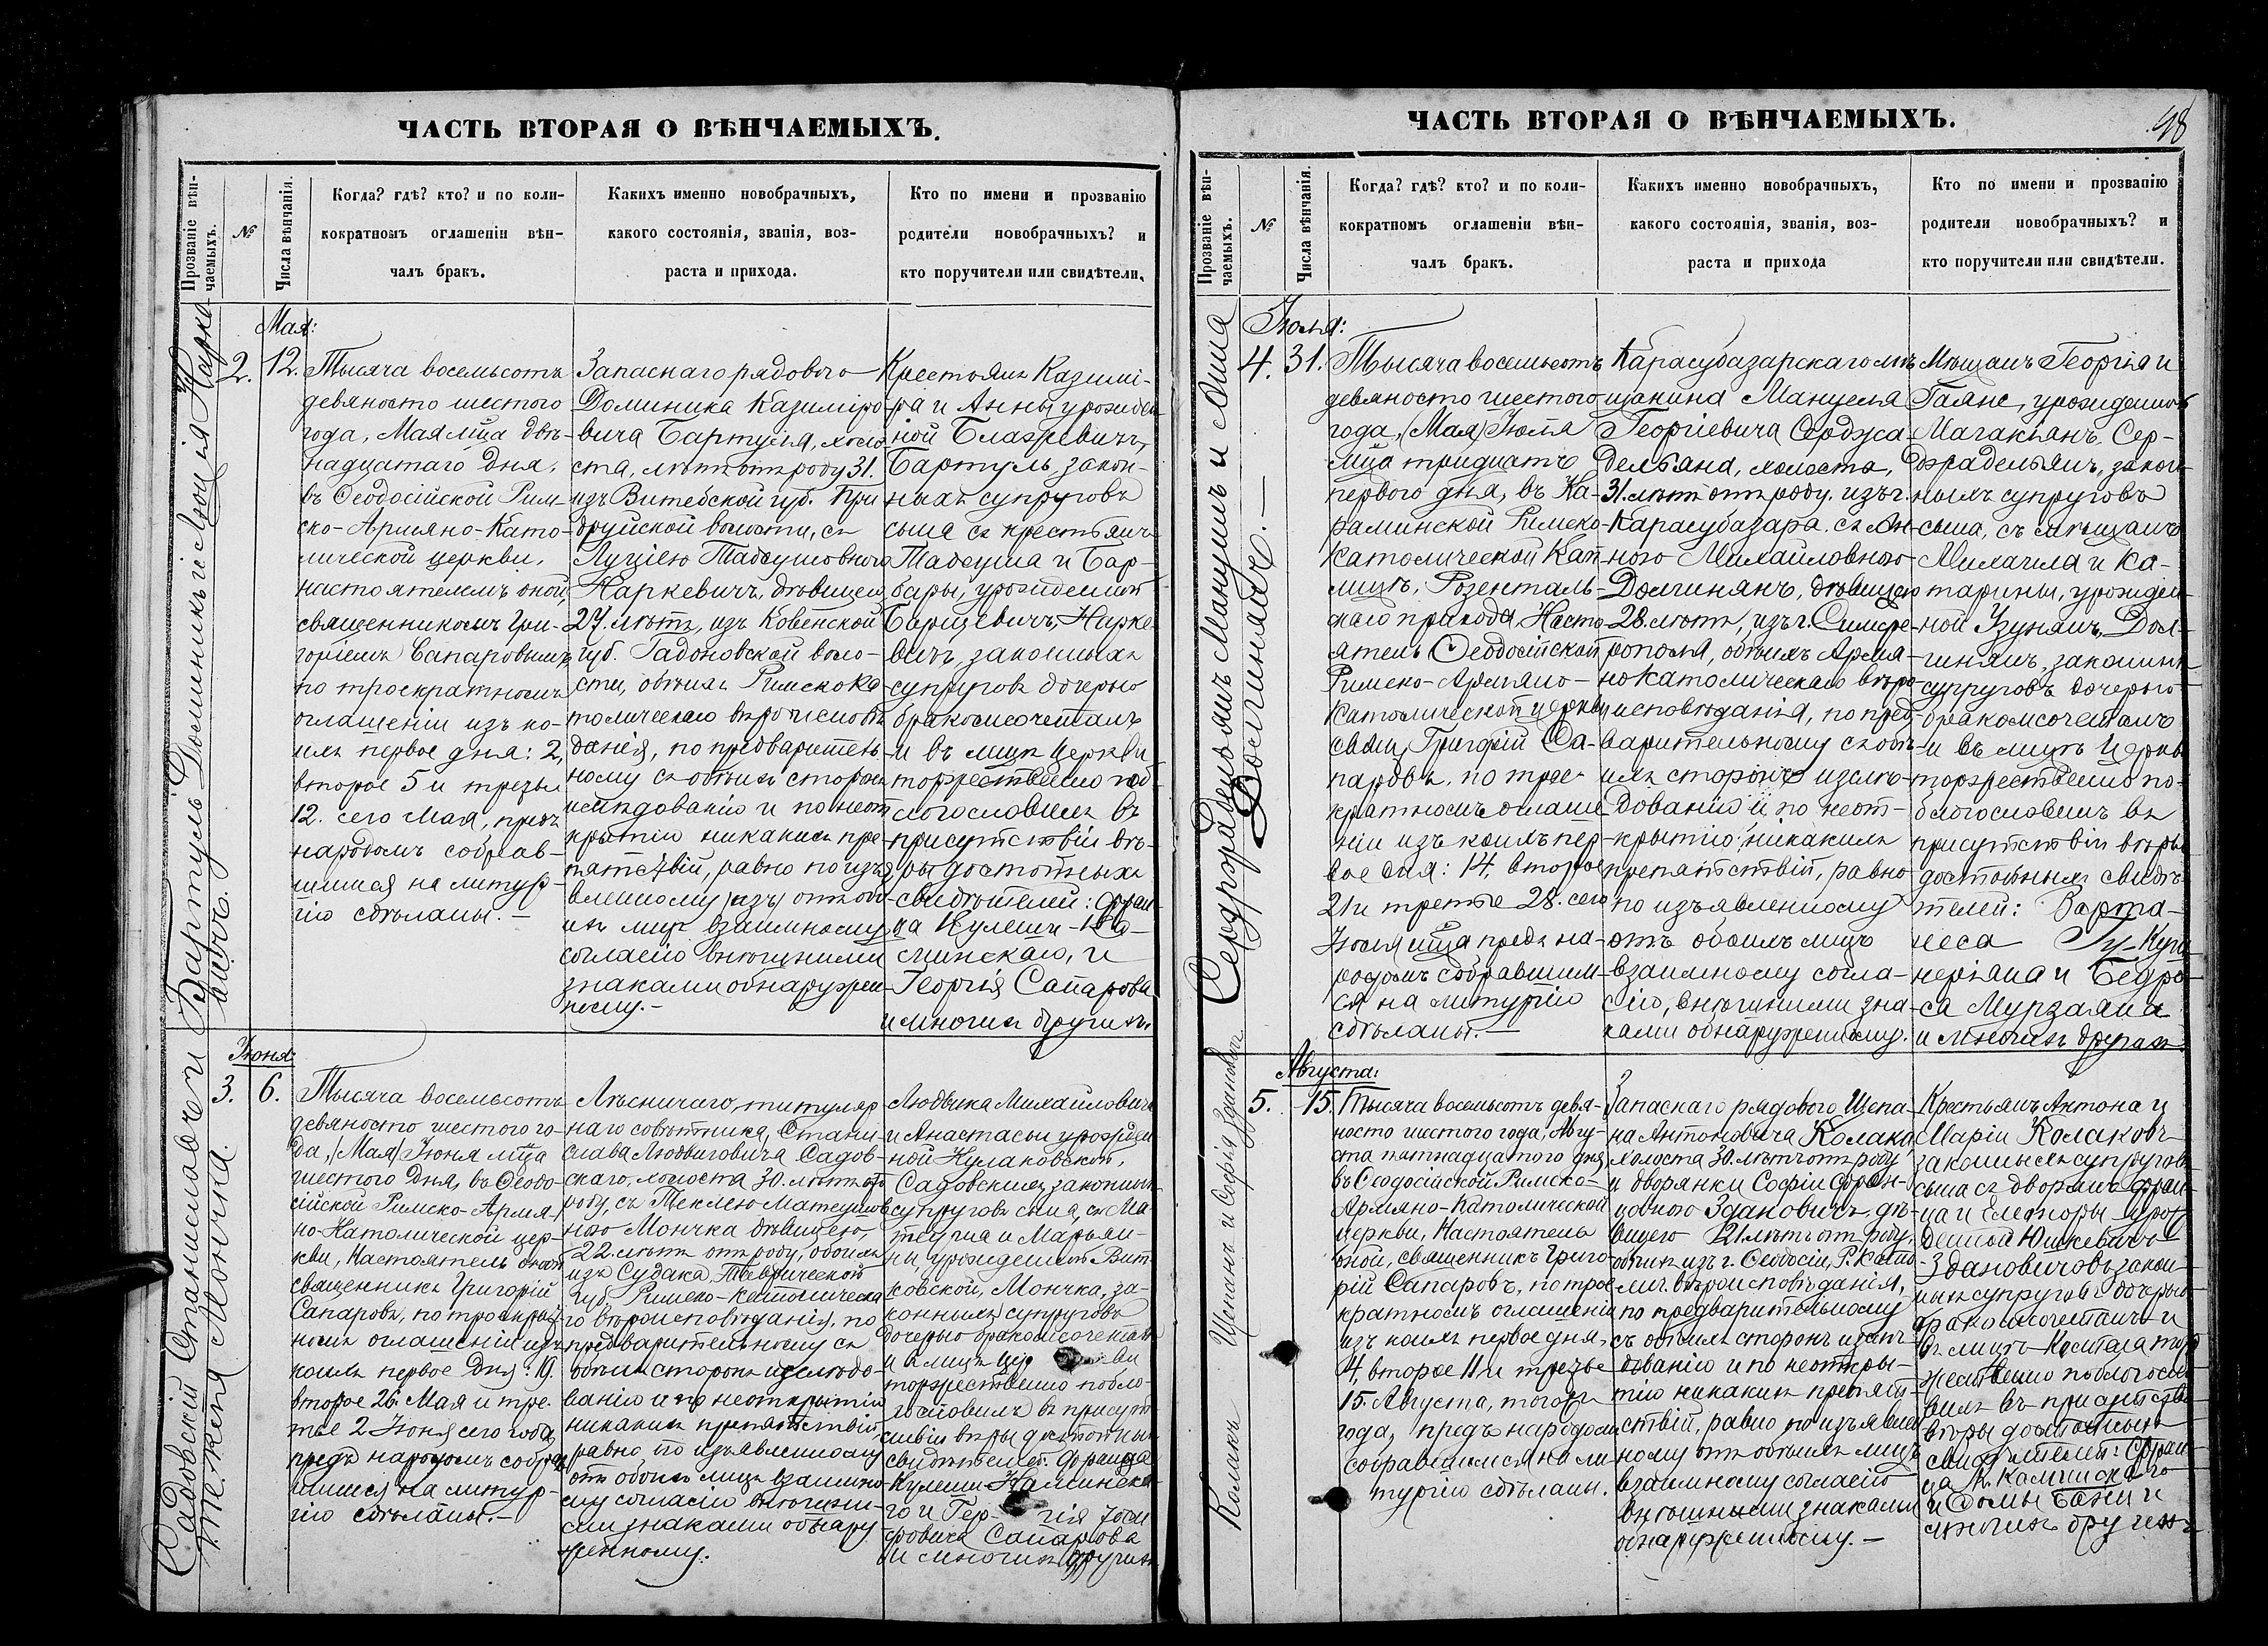 ЧАСТЬ ВТОРАЯ О ВѢНЧАЕМЫХЪ.
Прозваніе вѣн-
чаемыхъ.
№
Числа вѣнчанія.
Когда? гдѣ? кто? и по коли-
кократномъ оглашеніи вѣн-
чалъ бракъ.
Какихъ именно новобрачныхъ,
какого состоянія, званія, воз-
раста и прихода.
Кто по имени и прозванію
родители новобрачныхъ? и
кто поручители или свидѣтели.
Бартуль Доминикъ и
Мая:
2.
12.
Тысяча восемьсотъ
девяносто шестого
года, Мая мца двѣ-
надцатаго дня,
въ Ѳеодосійской Рим-
ско-Армяно-Като-
лической церкви,
настоятелемъ оной,
священникомъ Гри-
горіемъ Сапаровымъ
по троекратномъ
оглашеніи изъ ко-
ихъ первое дня: 2,
второе 5 и третье
12. сего Мая, предъ
народомъ собрав-
шимся на литур-
гію сдѣланы.-
Запаснаго рядового
Доминика Казиміро-
вича Бартуля, холо-
ста, лѣтъ отъ роду 31.
изъ Витебской губ. При
друйской волости, съ
Луціею Тадеушовною
Наркевичъ, дѣвицею
27. лѣтъ, изъ Ковенской
губ. Гадоновской воло-
сти, обоихъ Римскока-
толическаго вѣроисповѣ
данія, по предваритель
ному съ обѣихъ сторонъ
изслѣдованію и по неот
крытію никакихъ пре-
пятствій, равно по изъя
вленному (изъ) отъ обо-
ихъ лицъ взаимному
согласію внѣшними
знаками обнаружен-
ному.-
Крестьянъ Казимі-
ра и Анны урожден
ной Блажевичъ,
Бартуль, закон-
ныхъ супруговъ
сына съ крестьянъ
Тадеуша и Бар-
бары, урожденной
Барщевичъ, Нарке-
вичъ, законныхъ
супруговъ дочерью
бракомъ сочеталъ
и въ лицѣ Церкви
торжественно поб-
логословилъ въ
присутствіи вѣ-
ры достойныхъ
свидѣтелей: Фран
ца Кулеши-Ка-
минскаго, и
Георгія Сапарова
и многихъ другихъ.
Садовскій Станиславъ и
Текля Мончка.
Іюня:
3.
6.
Тысяча восемьсотъ
девяносто шестого го-
да, (Мая) Іюня мца
шестого дня, въ Ѳеодо-
сійской Римско-Армя-
но-Католической цер-
кви, Настоятель оной
священникъ Григорій
Сапаровъ, по троекрат
номъ оглашеніи изъ
коихъ первое дня: 19.
второе 26. Мая и тре-
тье 2 Іюня сего года,
предъ народомъ собрав
шимся на литур-
гію сдѣланы.-
Лѣсничаго, титуляр
наго совѣтника, Стани-
слава Людвиговича Садов-
скаго, холоста 30. лѣтъ отъ
роду, съ Теклею Матеушов
ною Мончка дѣвицею,
22. лѣтъ отъ роду, обоихъ
изъ Судака, Таврической
губ. Римско-католическа
го вѣроисповѣданія, по
предварительному съ
обѣихъ сторонъ изслѣдо-
ванію и по неоткрытію
никакихъ препятствій,
равно по изъявленному
отъ обоихъ лицъ взаимно
му согласію внѣшни-
ми знаками обнару-
женному.
Людвика Михайловича
и Анастасіи урожден
ной Кулаковской,
Садовскихъ законныхъ
супруговъ сына, съ Ма-
теуша и Марьян-
ны, урожденной Вит-
ковской, Мончка, за-
конныхъ супруговъ
дочерью бракомъ сочеталъ
и въ лицѣ Цер
торжественно побло-
гословилъ въ присут
ствіи вѣры достойныхъ
свидѣтелей: Франца
Кулеши-Каминска-
го и Гер- гія Іоси
фовича Сапарова
и многихъ другихъ
ЧАСТЬ ВТОРАЯ О ВѢНЧАЕМЫХЪ.
48
Прозваніе вѣн-
чаемыхъ.
№
Числа вѣнчанія.
Когда? гдѣ? кто? и по коли-
кократномъ оглашеніи вѣн-
чалъ бракъ.
Какихъ именно новобрачныхъ,
какого состоянія, званія, воз-
раста и прихода
Кто по имени и прозванію
родители новобрачныхъ? и
кто поручители или свидѣтели.
Серджадельянъ Мануилъ и Анна
Долгинянъ.-
Іюля:
4.
31.
Тысяча восемьсотъ
девяносто шестого
года, (Мая) Іюля
мца тридцать
первого дня, въ Ка-
раминской Римско-
Католической Кап-
лицѣ, Розенталь-
скаго прихода, Насто-
ятель Ѳеодосійской
Римско-Армяно-
Католической церкви
свящ. Григорій Са-
паровъ, по трое-
кратномъ оглаше
ніи изъ коихъ пер-
вое дня: 14, второе
21 и третье 28. сего
Іюля мца предъ на-
родомъ собравшим-
ся на литургію
сдѣланы.-
Карасубазарскаго мѣ-
щанина Мануеля
Георгіевича Серджа-
дельяна, холоста,
31. лѣтъ отъ роду. изъ г.
Карасубазара. съ Ан-
ною Михайловною
Долгинянъ, дѣвицею
28. лѣтъ, изъ г. Симфе-
рополя, обоихъ Армя-
нокатолическаго вѣро-
исповѣданія, по пред-
варительному съ обѣ-
ихъ сторонъ изслѣ-
дованію и по неот-
крытію никакихъ
препятствій, равно
по изъявленному
отъ обоихъ лицъ
взаимному согла-
сію, внѣшними зна-
ками обнаруженному.
Мѣщанъ Георгія и
Гаяне, урожденной
Магакьянъ, Сер-
джадельянъ, закон-
ныхъ супруговъ
сына, съ мѣщанъ
Михаила и Ка-
тарины, урожден-
ной Узунянъ, Дол-
гинянъ, законныхъ
супруговъ дочерью
бракомъ сочеталъ
и въ лицѣ Церкви
торжественно по-
блогословилъ въ
присутствіи вѣры
достойныхъ свидѣ-
телей: Варта-
неса
и Бедро-
са Мурзаяна
и многихъ другихъ.
Колакъ Щепанъ и Софія Здановичъ
Августа:
5.
15.
Тысяча восемьсотъ девя-
носто шестого года, Авгу-
ста пятнадцатого дня,
въ Ѳеодосійской Римско-
Армяно-Католической
церкви, Настоятель
оной, священникъ Григо-
рій Сапаровъ, по трое-
кратномъ оглашеніи
изъ коихъ первое дня,
4, второе 11 и третье
15. Августа, того же
года, предъ народомъ
собравшимся на ли
тургію сдѣланы.
Запаснаго рядового Щепа-
на Антоновича Колака
холоста 30. лѣтъ отъ роду
и дворянки Софіи Фран-
цовною Здановичъ, дѣ-
вицею 21 лѣтъ отъ роду,
обоихъ изъ г. Ѳеодосіи, Р. Като
лич. вѣроисповѣданія,
по предварительному
съ обѣихъ сторонъ изслѣ-
дованію и по неоткры-
тію никакихъ препят-
ствій, равно по изъявлен
ному отъ обоихъ лицъ
взаимному согласію
внѣшними знаками
обнаруженному.-
Крестьянъ Антона и
Маріи Колаковъ
законныхъ супруговъ
сына съ дворянъ Фран-
ца и Елеоноры урож
денной Юшкевичъ
Здановичовъ закон-
ныхъ супруговъ дочерью
бракомъ сочеталъ и
въ лицѣ Костела торж
жественно поблогосло
вилъ въ присутствіи
вѣры достойныхъ
свидѣтелей: Фран-
ца К. Каминскаго
и
многихъ другихъ